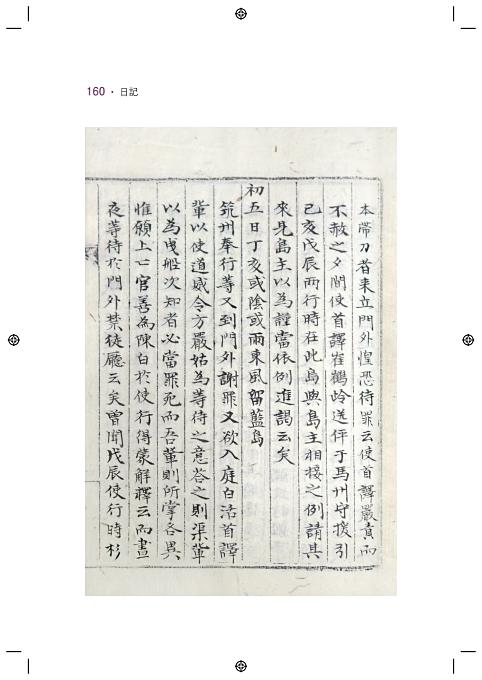 160 • 日記
本帶刀者來立門外惶恐待罪云使首譯嚴責而
不赦之夕間使首譯崔鶴岭送伻于馬州守援引
己亥戊辰兩行時在此島與島主相接之例請其
來見島主以為謹當依例進謁云矣
初五日丁亥或陰或雨東風留藍島
筑州奉行等又到門外謝罪又欲入庭白活首譯
輩以使道威令方嚴姑為等待之意答之則渠輩
以為曳船次知者必當罪死而吾輩則所掌各異
惟願上上官善為陳白於使行得蒙解釋云而晝
夜等待於門外禁徒廳云矣曾聞戊辰使行時杉